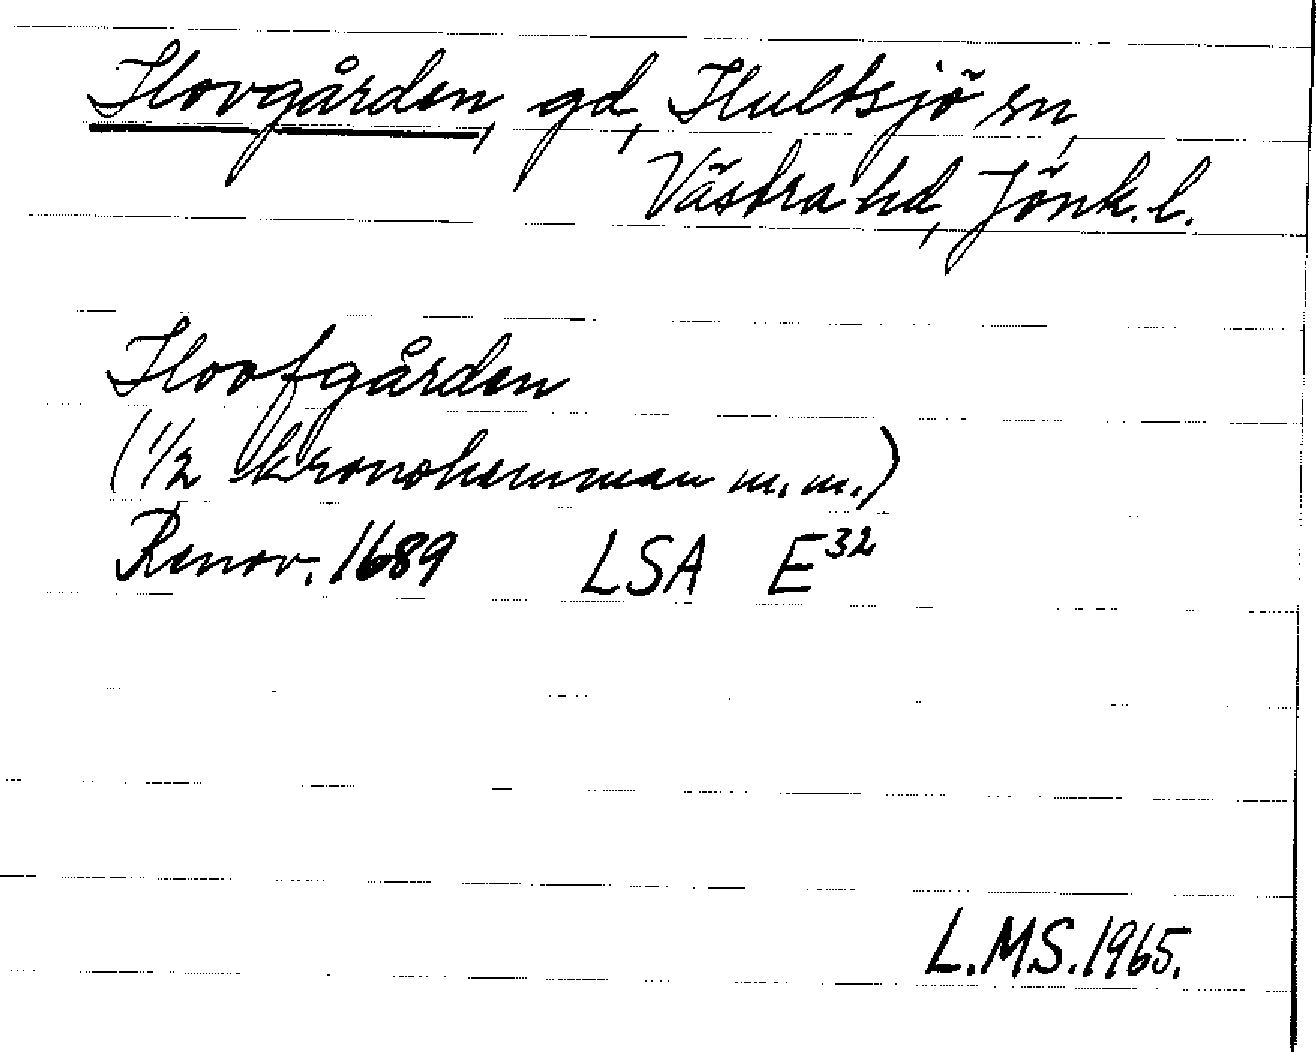 Hovgården, gd, Hultsjö sn,
Västra hd, Jönk. l.
Hoofgården
(1/2 kronohemman m. m.)
Renov. 1689 LSA E32
L.M.S. 1965.